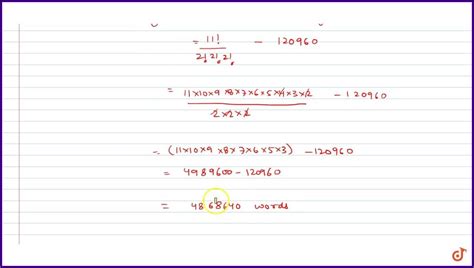 = 11! / 2! 2! 2! - 120960
= 11×10×9×8×7×6×5×4×3×2 / 2×2×2 - 120960
= (11×10×9×8×7×6×5×3) - 120960
= 4989600 - 120960
= 4868640 words